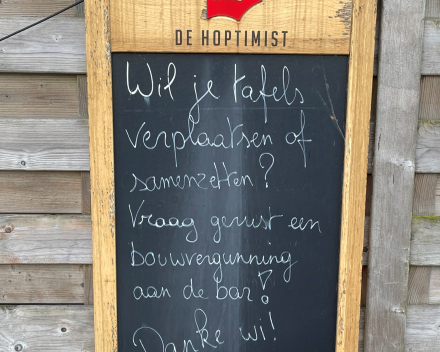 DE HOPTIMIST
Wil je tafels
verplaatsen of
samenzetten?
Vraag gerust een
bouwvergunning
aan de bar!
Danke wi!